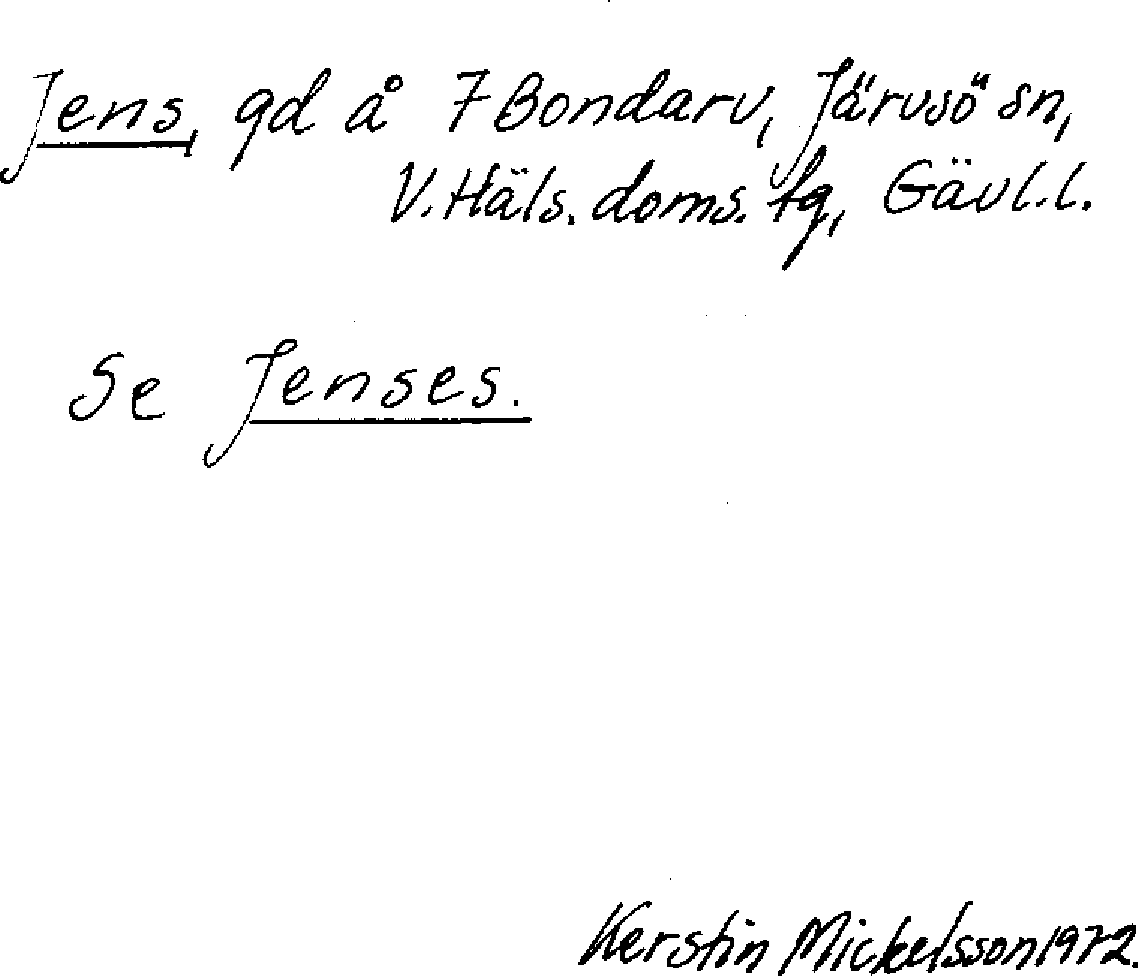 Jens, gd å 7 Bondarv, Järvsö sn,
V. Häls. doms. fg, Gävl. l.
Se Jenses.
Kerstin Mickelsson 1972.